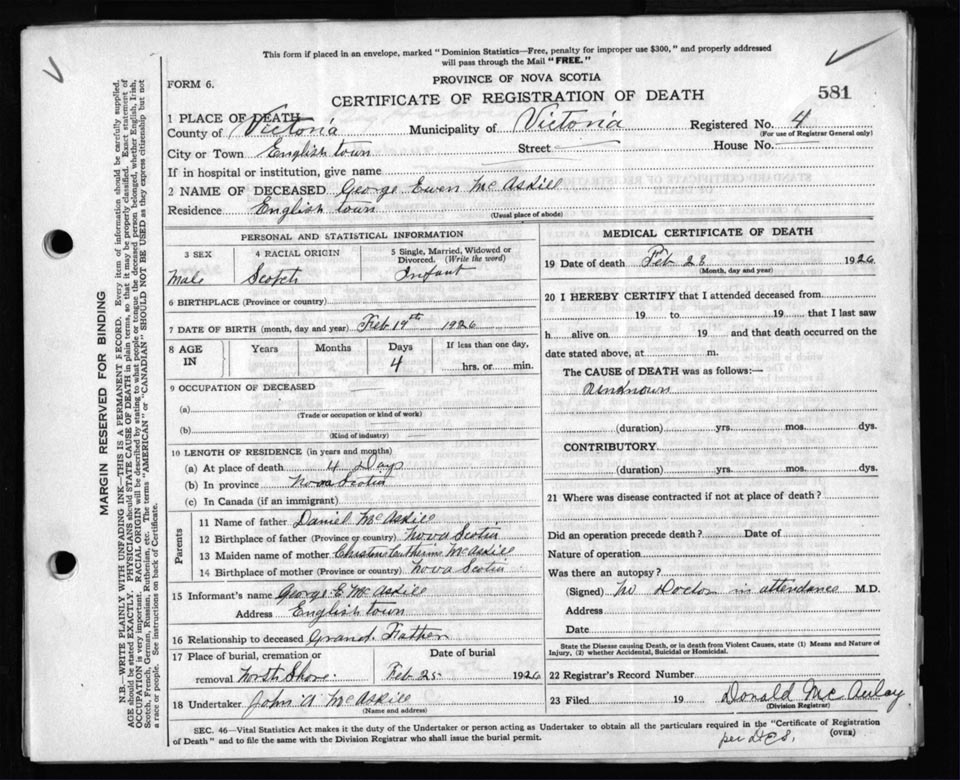 This form if placed in an envelope, marked "Dominion Statistics—Free, penalty for improper use $300," and properly addressed
will pass through the Mail "FREE."
PROVINCE OF NOVA SCOTIA
FORM 6.
CERTIFICATE OF REGISTRATION OF DEATH
581
1 PLACE OF DEATH
County of Victoria Municipality of Victoria Registered No. 4
(For use of Registrar General only)
City or Town Englishtown Street House No.
If in hospital or institution, give name
2 NAME OF DECEASED George Ewen McAskill
Residence Englishtown
(Usual place of abode)
PERSONAL AND STATISTICAL INFORMATION
3 SEX 4 RACIAL ORIGIN 5 Single, Married, Widowed or Divorced. (Write the word)
Male Scotch Infant
6 BIRTHPLACE (Province or country)
7 DATE OF BIRTH (month, day and year) Feb 19th 1926
8 AGE IN Years Months Days If less than one day,
4 hrs. or min.
9 OCCUPATION OF DECEASED
(a)
(Trade or occupation or kind of work)
(b)
(Kind of industry)
10 LENGTH OF RESIDENCE (in years and months)
(a) At place of death 4 Days
(b) In province Nova Scotia
(c) In Canada (if an immigrant)
Parents
11 Name of father Daniel McAskill
12 Birthplace of father (Province or country) Nova Scotia
13 Maiden name of mother Christena McAskill
14 Birthplace of mother (Province or country) Nova Scotia
15 Informant's name George E McAskill
Address Englishtown
16 Relationship to deceased Grand Father
17 Place of burial, cremation or Date of burial
removal North Shore Feb 25 1926
18 Undertaker John A McAskill
(Name and address)
MEDICAL CERTIFICATE OF DEATH
19 Date of death Feb 23 1926
(Month, day and year)
20 I HEREBY CERTIFY that I attended deceased from
19 to 19 that I last saw
h alive on 19 and that death occurred on
date stated above, at m.
The CAUSE of DEATH was as follows:—
unknown
(duration) yrs. mos. dys.
CONTRIBUTORY
(duration) yrs. mos. dys.
21 Where was disease contracted if not at place of death?
Did an operation precede death? Date of
Nature of operation
Was there an autopsy?
(Signed) No Doctor in attendance M.D.
Address
Date
State the Disease causing Death, or in death from Violent Causes, state (1) Means and Nature of
Injury, (2) whether Accidental, Suicidal or Homicidal.
22 Registrar's Record Number
23 Filed 19 Donald McAulay
(Division Registrar)
SEC. 46—Vital Statistics Act makes it the duty of the Undertaker or person acting as Undertaker to obtain all the particulars required in the "Certificate of Registration
of Death" and to file the same with the Division Registrar who shall issue the burial permit.
(OVER)
per
MARGIN RESERVED FOR BINDING
N.B.—WRITE PLAINLY WITH UNFADING INK—THIS IS A PERMANENT RECORD. Every item of information should be carefully supplied.
AGE should be stated EXACTLY. PHYSICIANS should STATE CAUSE OF DEATH in plain terms, so that it may be properly classified. Exact statement of
OCCUPATION is very important. RACIAL ORIGIN will be described by stating to what people or tongue the deceased person belonged, whether English, Irish,
Scotch, French, German, Russian, Ruthenian, etc. The terms "AMERICAN" or "CANADIAN" SHOULD NOT BE USED as they express citizenship but not
a race or people. See instructions on back of Certificate.